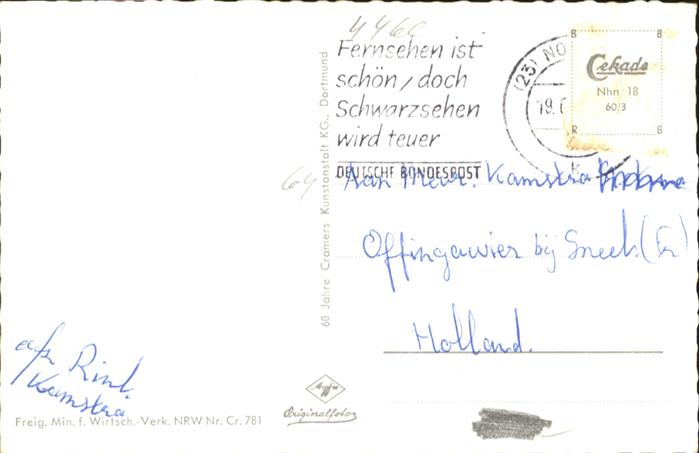 4460
Fernsehen ist
schön, doch
Schwarzsehen
wird teuer
DEUTSCHE BUNDESPOST
(23) NO
19.
B B
Cekade
Nhn 18
60/3
R B
60 Jahre Cramers Kunstanstalt KG., Dortmund
64
Aan Mevr. Kamstra
Offingawier bij Sneek (Fr)
Holland.
afz Rink.
Kamstra
Freig. Min. f. Wirtsch.-Verk. NRW Nr. Cr. 781
Agfa
Originalfoto